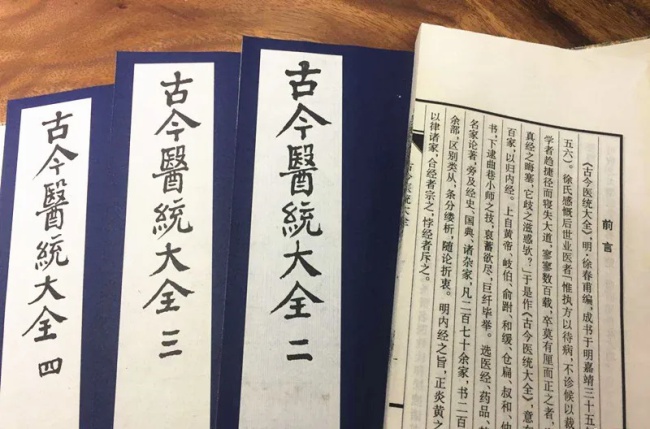 前言
《古今医统大全》，明·徐春甫编，成书于明嘉靖三十五
五六）。徐氏感慨后世业医者“惟执方以待病，不诊候以裁
学者趋捷径而寝失大道，寥寥数百载，卒莫有厘而正之者，
真经之晦塞，它歧之滋惑欤？”于是作《古今医统大全》意在
百家，以归内经。上自黄帝、岐伯、俞跗、和缓、仓扁、叔和、仲
书，下逮曲巷小师之技，裒蓄欲尽，巨纤毕举。选医经、药品、
名家论著，旁及经史、国典、诸杂家，凡二百七十余家，书二百
余部，区别类从，条分缕析，随论折衷。明内经之旨，正炎黄之
以律诸家，合经者宗之，悖经者斥之。
古今医统大全
古今醫統大全 二
古今醫統大全 三
古今醫統大全 四